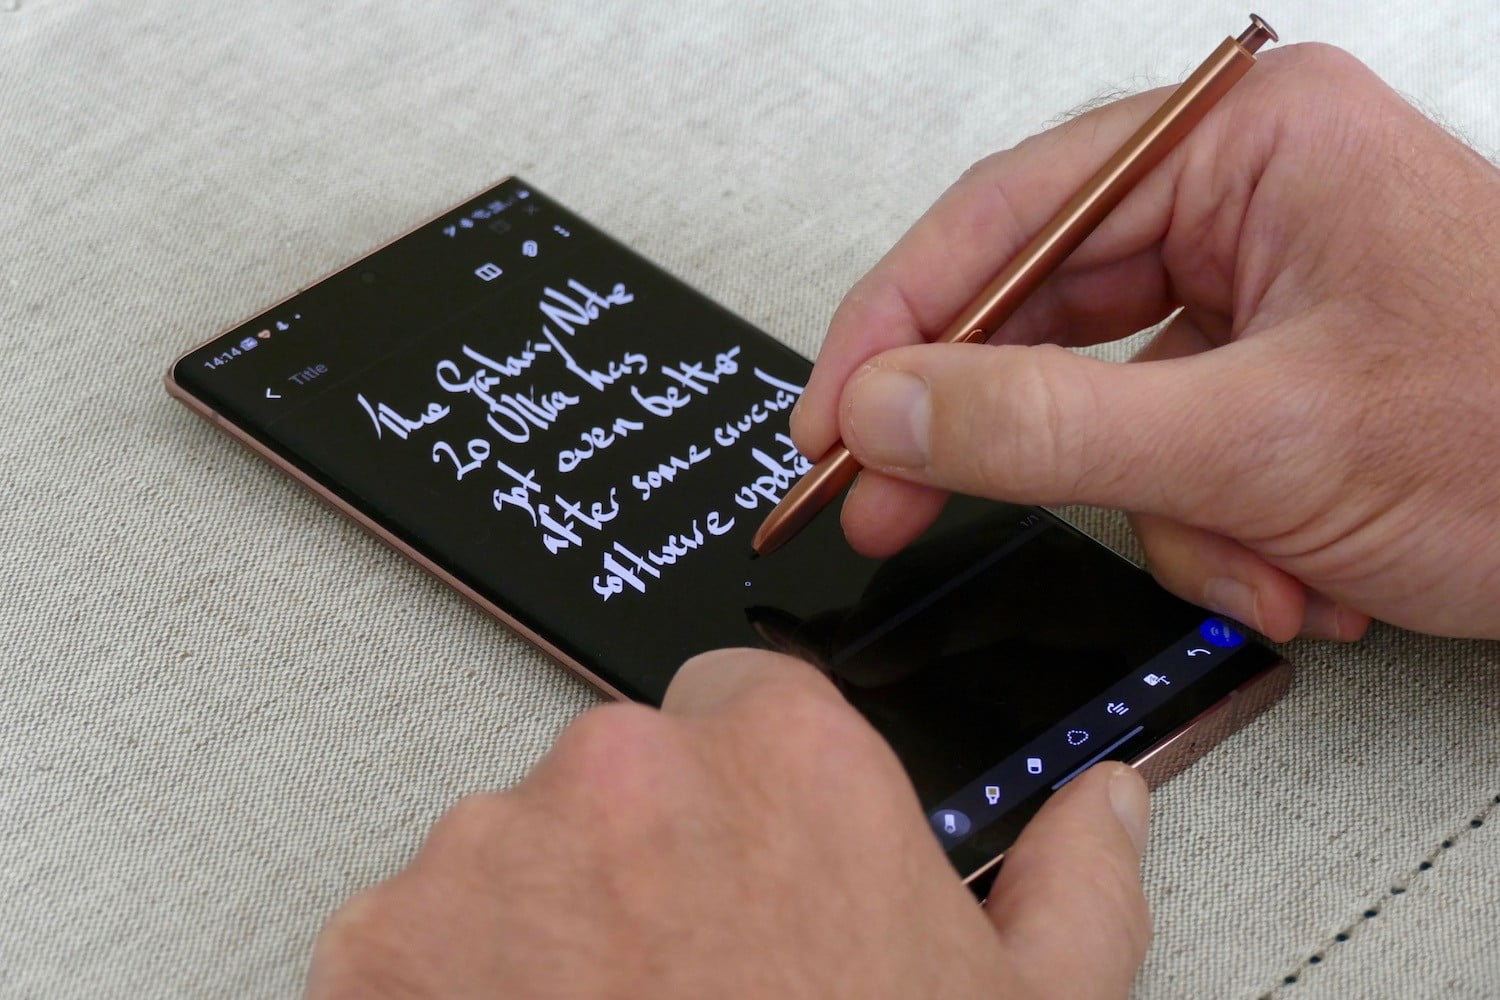 14:14
Title
The Galaxy Note
20 Ultra has
got even better
after some crucial
software update
1/1